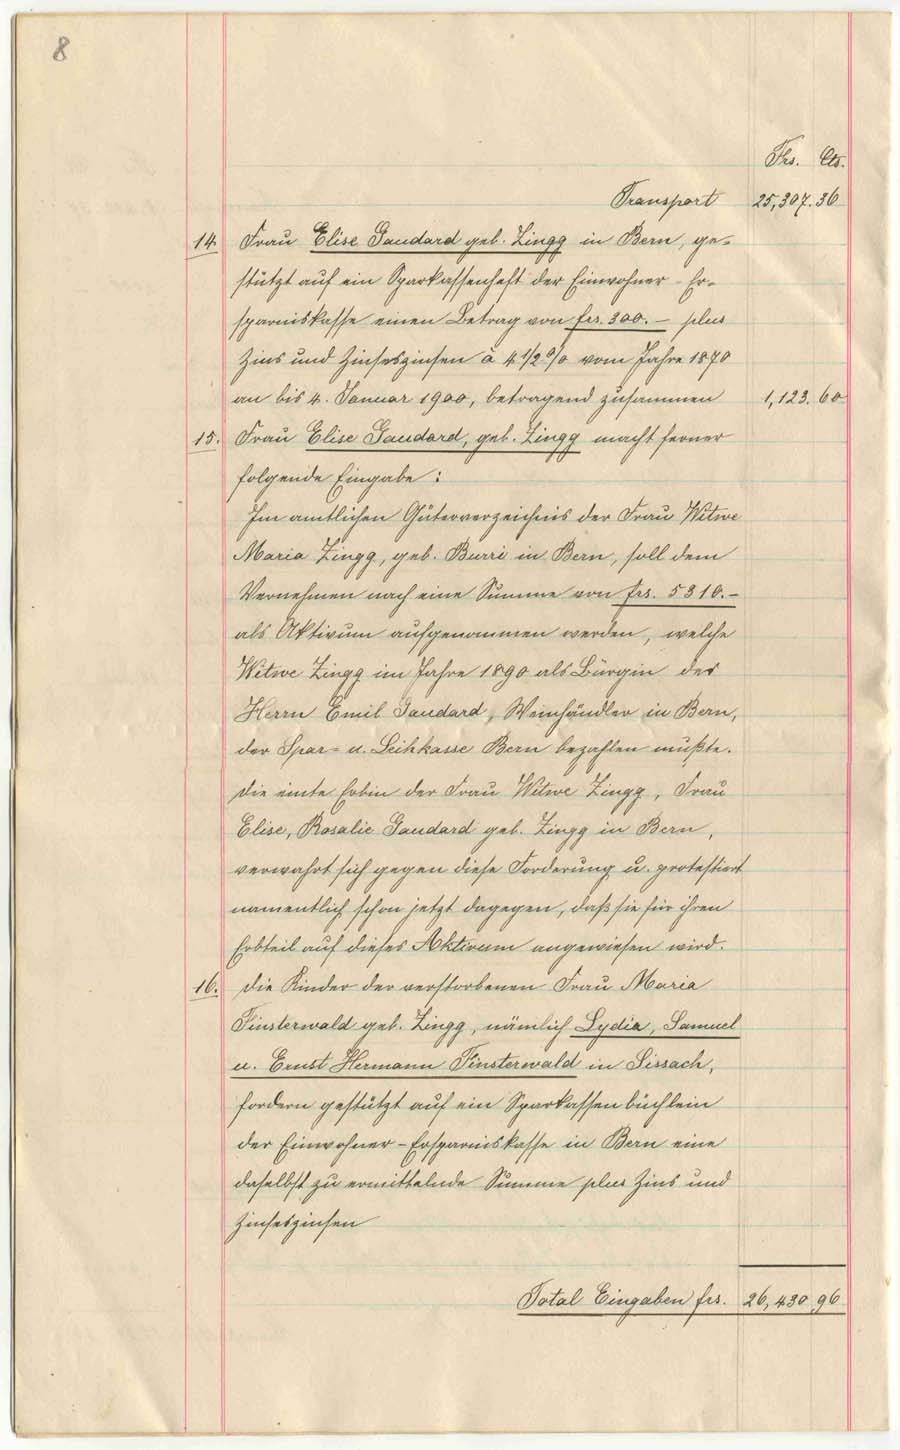 8
Frs. Cts.
Transport 25,307.36
14. Frau Elise Gaudard geb. Zingg in Bern, ge-
stützt auf ein Sparkassenheft der Einwohner-Er-
sparniskasse einen Betrag von frs. 300.- plus
Zins und Zinseszinsen à 4 1/2 % vom Jahre 1870
an bis 4. Januar 1900, betragend zusammen 1,123.60
15. Frau Elise Gaudard, geb. Zingg macht ferner
folgende Eingabe:
Im amtlichen Güterverzeichnis der Frau Witwe
Maria Zingg, geb. Burri in Bern, soll dem
Vernehmen nach eine Summe von frs. 5310.-
als Aktivum aufgenommen werden, welche
Witwe Zingg im Jahre 1890 als Bürgin des
Herrn Emil Gaudard, Weinhändler in Bern,
der Spar- u. Leihkasse Bern bezahlen mußte.
Die einte Erbin der Frau Witwe Zingg, Frau
Elise, Rosalie Gaudard geb. Zingg in Bern,
verwahrt sich gegen diese Forderung u. protestiert
namentlich schon jetzt dagegen, daß sie für ihren
Erbteil auf dieses Aktivum angewiesen wird.
16. Die Kinder der verstorbenen Frau Maria
Finsterwald geb. Zingg, nämlich Lydia, Samuel
u. Ernst Hermann Finsterwald in Sissach,
fordern gestützt auf ein Sparkassenbüchlein
der Einwohner-Ersparniskasse in Bern eine
daselbst zu ermittelnde Summe plus Zins und
Zinseszinsen
Total Eingaben frs. 26,430 96